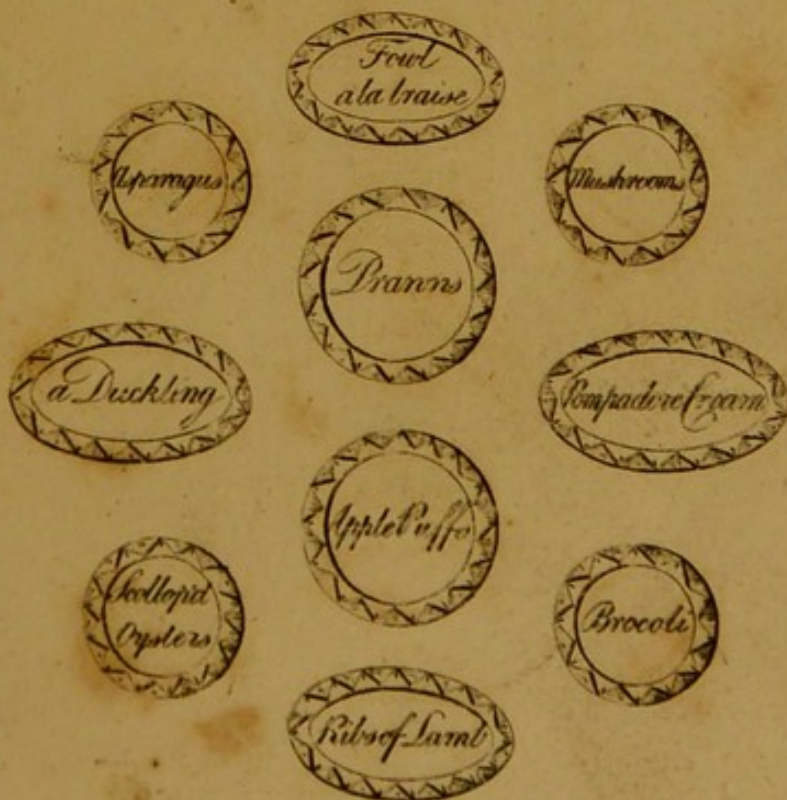 Fowl
a la braise
Asparagus
Mushrooms
Pranns
a Duckling
Pompadore Cream
Apple Puffs
Scollop'd
Oysters
Brocoli
Ribs of Lamb